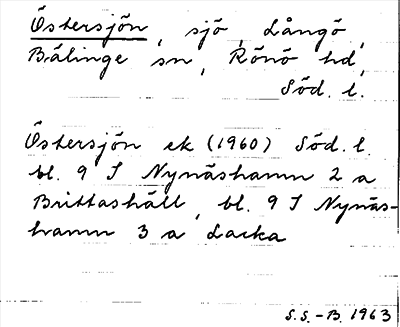 Östersjön, sjö, Långö,
Bälinge sn, Rönö hd,
Söd. l.
Östersjön ek (1960) Söd. l.
bl. 9 I Nynäshamn 2 a
Brittashäll, bl. 9 I Nynäs-
hamn 3 a Lacka
S.S.-B. 1963